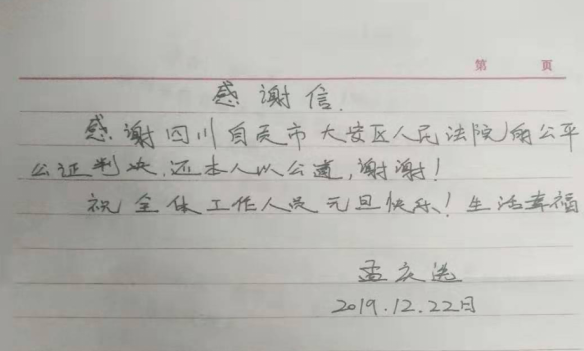 第 页
感谢信.
感谢四川自贡市大安区人民法院的公平
公证判决,还本人以公道,谢谢!
祝全体工作人员元旦快乐!生活幸福
孟庆
2019.12.22日